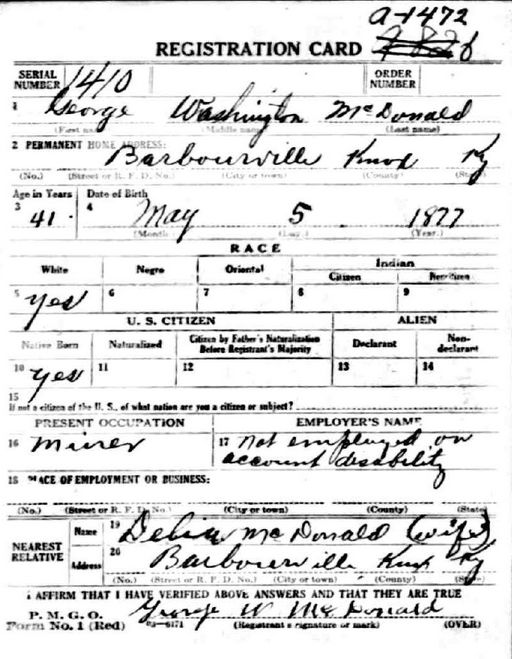 A-1472
REGISTRATION CARD
SERIAL NUMBER 1410 ORDER NUMBER
1 George Washington McDonald
(First name) (Middle name) (Last name)
2 PERMANENT HOME ADDRESS:
Barbourville Knox Ky
(No.) (Street or R. F. D. No.) (City or town) (County) (State)
Age in Years Date of Birth
3 41. 4 May 5 1877
(Month.) (Day.) (Year.)
RACE
White Negro Oriental Indian
Citizen Noncitizen
5 Yes 6 7 8 9
U. S. CITIZEN ALIEN
Native Born Naturalized Citizen by Father's Naturalization Before Registrant's Majority Declarant Non-declarant
10 Yes 11 12 13 14
15
If not a citizen of the U. S., of what nation are you a citizen or subject?
PRESENT OCCUPATION EMPLOYER'S NAME
16 Miner 17 Not employed on
account disability
18 PLACE OF EMPLOYMENT OR BUSINESS:
(No.) (Street or R. F. D. No.) (City or town) (County) (State)
NEAREST RELATIVE Name 19 Delia McDonald (wife)
Address 20 Barbourville Knox Ky
(No.) (Street or R. F. D. No.) (City or town) (County) (State)
I AFFIRM THAT I HAVE VERIFIED ABOVE ANSWERS AND THAT THEY ARE TRUE
P. M. G. O. George W McDonald
Form No. 1 (Red) 03-6171 (Registrant's signature or mark) (OVER)